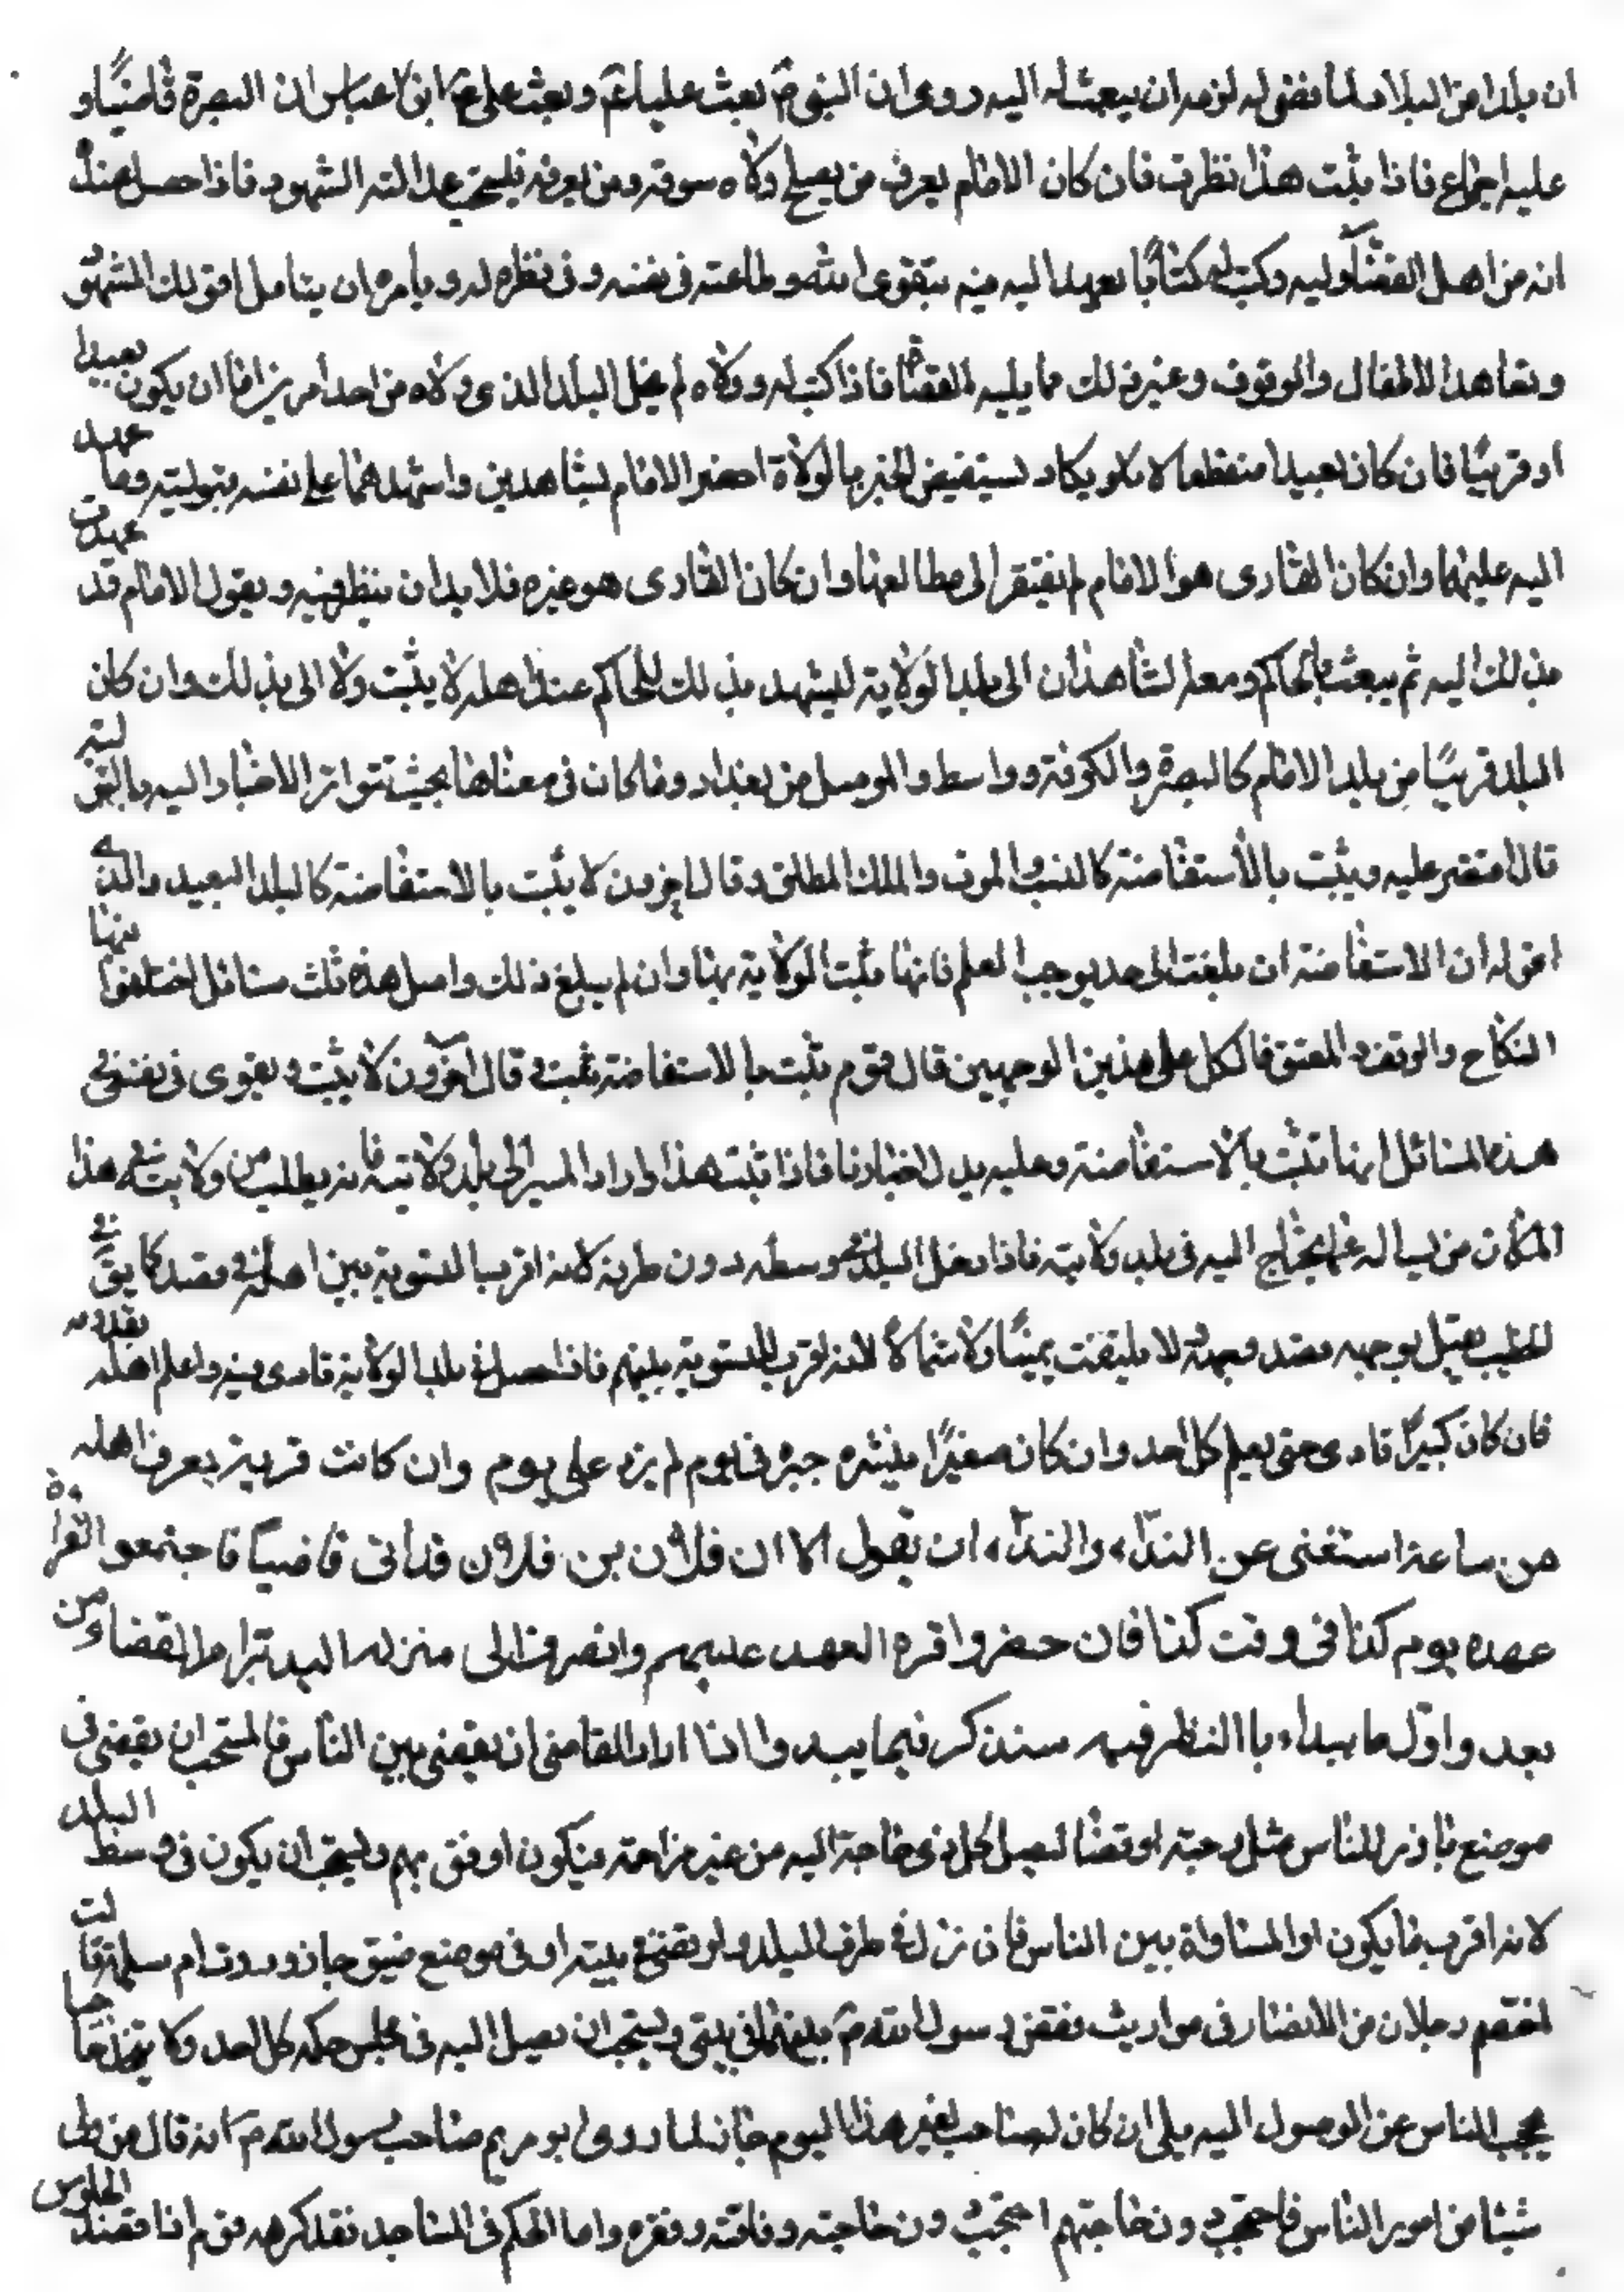 ان بلدا من البلاد لا قاضى له لزمه ان يبعث له اليه روى ان النبى ص بعث عليا ع و بعث على ع ابن عباس الى البصرة قاضيًا و
عليه اجماع فاذا ثبت هذا نظرت فان كان الامام يعرف من يصلح ولاه سوقه ومن يعرفه فليستحق عدالته الشهود فاذا حصل عنده
انه من اهل القضاء وليه وكتب له كتابًا يعهد اليه فيه بتقوى الله و طاعته فى نفسه و فى نظره له و يأمره ان يتأمل احوال الشهود
و تعاهد الاطفال والوقوف و غير ذلك مما يليه القضاة فاذا كتب له و ولاه لم يخل البلد الذى ولاه من احد امرين اما ان يكون بعيدا
او قريبًا فان كان بعيدا منقطعا لا يكاد يستفيض الخبر بالولاة احضر الامام شاهدين و اشهدهما على نفسه بتوليته وما عهد
اليه عليهما وان كان القارى هو الامام لم يفتقر الى مطالعتها وان كان القارى هو غيره فلا بد ان ينظر فيه و يقول الامام قد عهدت
بذلك اليه ثم يبعث بالحاكم و معه الشاهدان الى بلد الولاية ليشهد بذلك للحاكم عند اهله لا يثبت ولا الى بذلك وان كان
البلد قريبًا من بلد الامام كالبصرة والكوفة و واسط و الموصل من بغداد وما كان فى معناها بحيث تتواتر الاخبار اليه بالتولية
قال مقتصر عليه و يثبت بالاستفاضة كالنسب و الموت و الملك المطلق و قال اخرون لا يثبت بالاستفاضة كالبلد البعيد و الذى
اقوله ان الاستفاضة ان بلغت الى حد يوجب العلم فانها تثبت الولاية بها وان لم يبلغ ذلك و اصل هذه ثلث مسائل اختلفوا فيها
النكاح و الوقف و العتق فالكل على هذين الوجهين قال قوم تثبت بالاستفاضة ثبت و قال اخرون لا يثبت و يقوى فى نفسى فى
هذه المسائل انها تثبت بالاستفاضة و عليه يدل اخبارنا فاذا ثبت هذا و اراد المسير الى بلد ولايته فانه يطلب من ولايته فى هذا
المكان من يساله عما يحتاج اليه فى بلد ولايته فاذا دخل البلد نزل وسطه دون طرفه لانه اقرب التسوية بين اهله فى قصد كا يق فى
الخطيب يقبل بوجهه قصد وجهه لا يلتفت يمينًا ولا شمالاً لانه اقرب للتسوية بينهم فاذا حصل فى بلد الولاية نادى فيه و اعلم اهله بقدومه
فان كان كبيرًا نادى حتى يعلم كل احد و ان كان صغيرًا ينشره خبره فى يوم لم يزد على يوم وان كانت قرية يعرف اهله
من ساعة استغنى عن النداء، والنداء، ان يقول الا ان فلان بن فلان قد أتى قاضيًا فاجتمعوا لقراءة
عهده يوم كذا فى وقت كذا فان حضروا قره العهد عليهم و انصرف الى منزله اليه تراموا القضاء من
بعد و اوّل ما يبداء بالنظر فيه سنذكر فيما يبدوا اذا اراد القاضى ان يقضى بين الناس فالمستحب ان يقضى فى
موضع بارز للناس مثل رحبة او فضا ليصل كل ذى حاجة اليه من غير مزاحمة فيكون اوفق بهم و يستحب ان يكون فى وسط البلد
لانه اقرب ما يكون او المساواة بين الناس فان نزل فى طرف البلد و لو يقضى فى بيته او فى موضع ضيق جاز و روت ام سلمة قالت
اختصم رجلان من الانصار فى مواريث فقضى رسول الله ص بينهما فى بيتى و يستحب ان يصل اليه فى مجلس حكمه كل احد ولا يتخذ حاجبا
يحجب الناس عن الوصول اليه بلى ان كان لصاحب لغير هذا اليوم جاز لما روى ابو مريم صاحب رسول الله ص انه قال من ولى
شيئا من امور الناس فاحتجب دون حاجتهم احتجب دون حاجته و فاقته و فقره و اما الحكم فى المساجد فقد كرهه قوم اذا قصد الجلوس